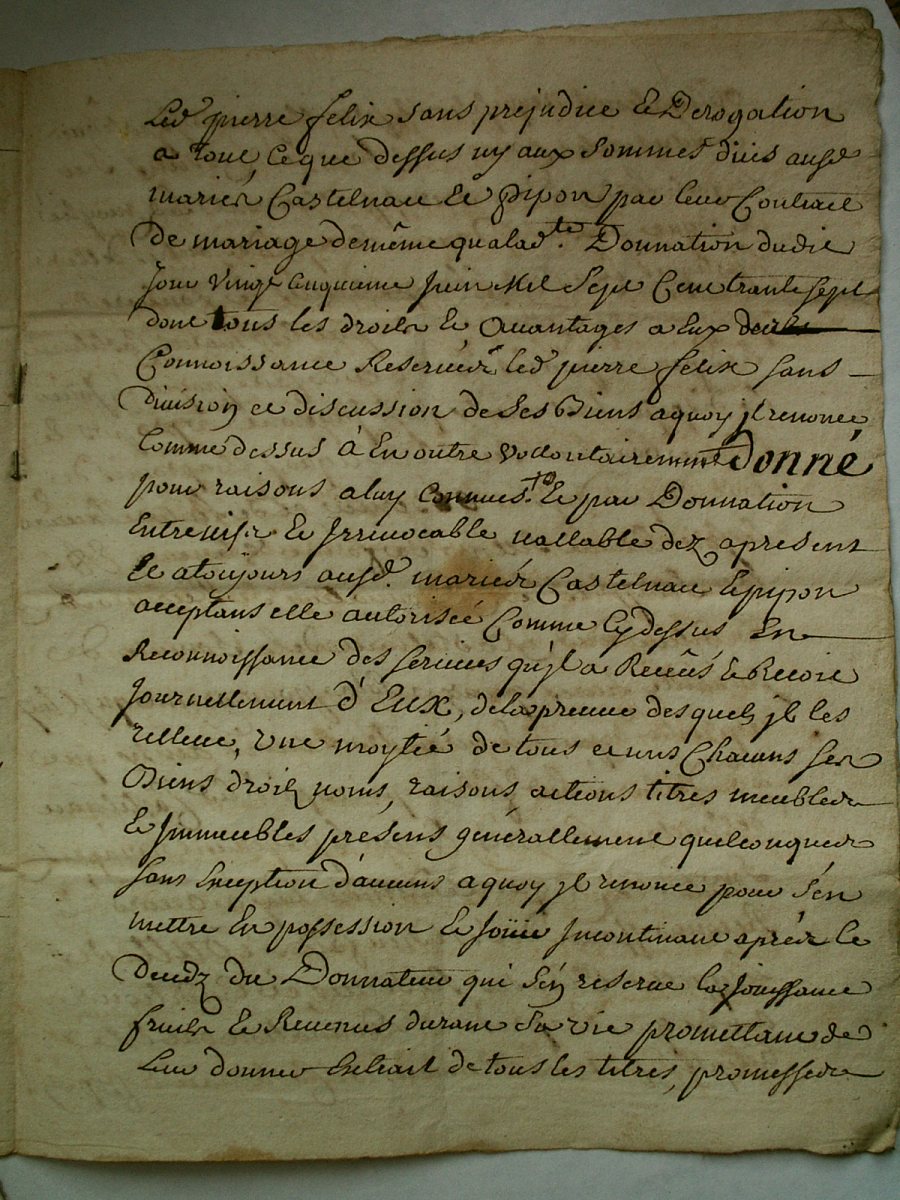 Led pierre felix sans prejudice & Derogation
a tout ce que dessus ny aux Sommes dües ausd.
mariés Castelnau & pipon par leur Contract
de mariage de même qualad.te Donnation dudit
Jour vingt cinquieme Juin Mil Sept Cent trante Sept
dont tous les droits & Avantages a Eux
Connoissance Reservés led pierre felix sans
Division et discussion de Ses Biens aquoy jl renonce
Comme dessus à En outre volontairement Donné
pour raisons a luy Connues & par Donnation
Entrevifs & Jrrevocable vallable dez apresent
& atoujours ausd. mariés Castelnau & pipon
acceptans elle autorisée Comme Cydessus En
Reconnoissance des services qu'jl a Receus & Recoit
Journellement d'Eux, dela preuve desquels jl les
relleve, une moytié de tous et uns Chacuns ses
Biens droits noms, raisons actions titres meubles
& Jmmeubles présens généralement quelconques
sans Exception d'aucuns aquoy jl renonce pour s'en
mettre En possession & Joüir Jncontinant aprés le
decedz du Donnateur qui s'en reserve la Jouissance
fruits & Revenus durant sa vie promettant de
Leur donner Extrait de tous les titres, promesses